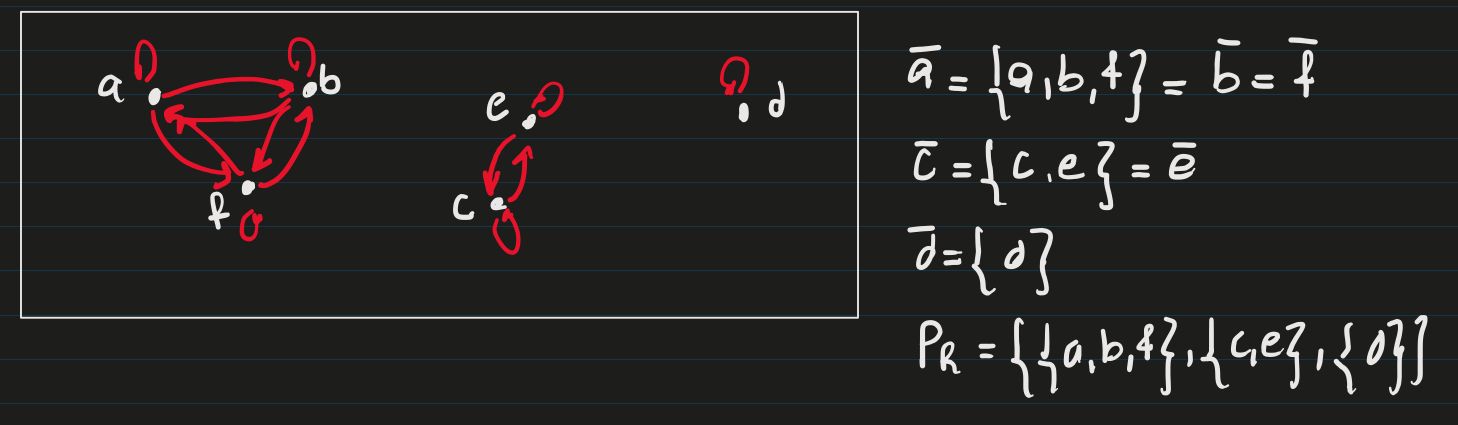 a
b
e
d
f
c
a̅ = {a, b, f} = b̅ = f̅
c̅ = {c, e} = e̅
d̅ = {d}
P_R = {{a, b, f}, {c, e}, {d}}